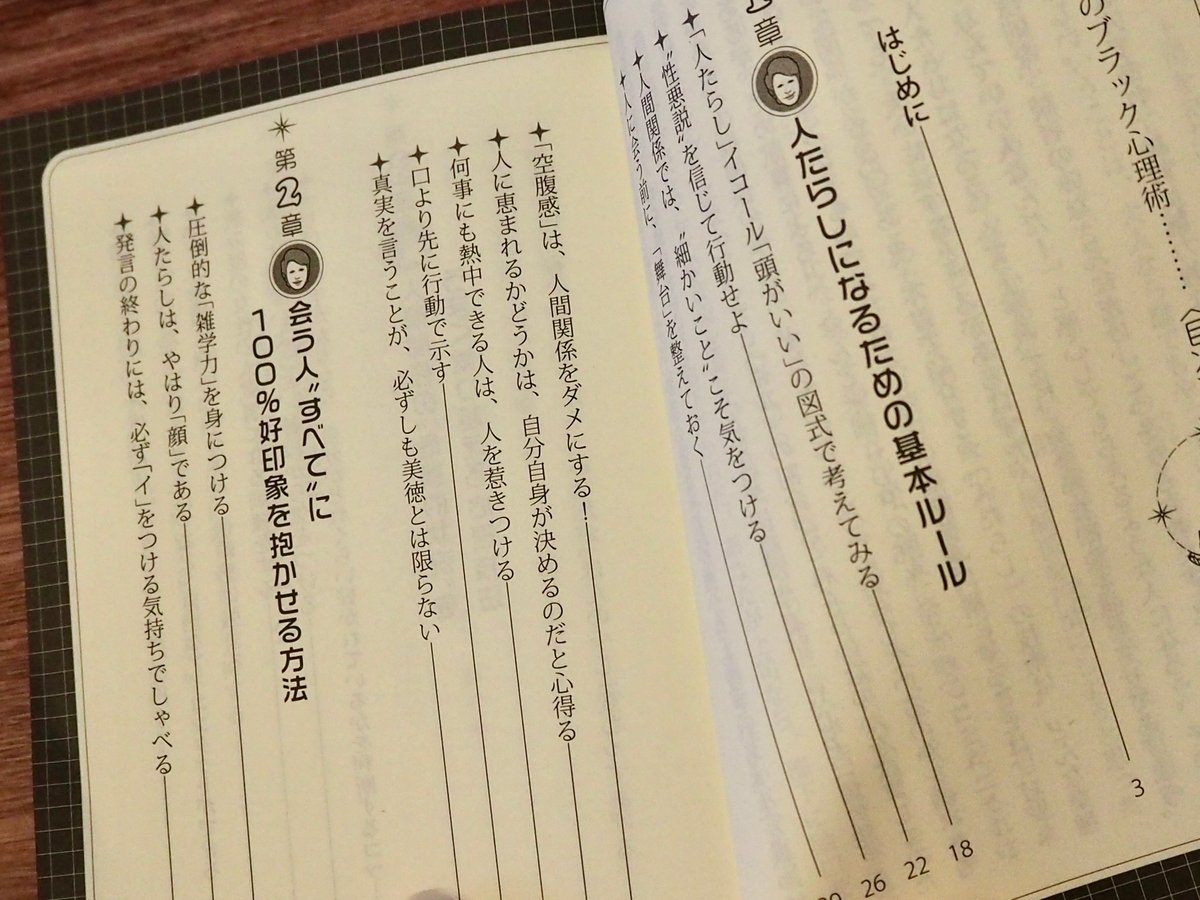 のブラック心理術………
はじめに 3
章
人たらしになるための基本ルール
「人たらし」イコール「頭がいい」の図式で考えてみる 18
“性悪説”を信じて行動せよ 22
人間関係では、“細かいこと”こそ気をつける 26
人に会う前に、「舞台」を整えておく
「空腹感」は、人間関係をダメにする!
人に恵まれるかどうかは、自分自身が決めるのだと心得る
何事にも熱中できる人は、人を惹きつける
口より先に行動で示す
真実を言うことが、必ずしも美徳とは限らない
第2章
会う人“すべて”に
100%好印象を抱かせる方法
圧倒的な「雑学力」を身につける
人たらしは、やはり「顔」である
発言の終わりには、必ず「イ」をつける気持ちでしゃべる